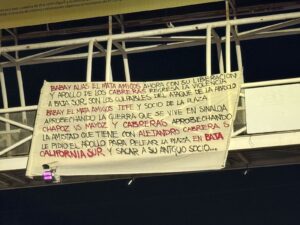 BABAY ALIAS EL MATA AMIGOS AHORA CON SU LIBERACION
Y APOLLO DE LOS CABRERAS REGRESA LA VIOLENCIA
A BAJA SUR, SON LOS CULPABLES DEL ATAQUE DE LA
BABAY EL MATA AMIGOS JEFE Y SOCIO DE LA PLAZA
APROBECHANDO LA GUERRA QUE SE VIVE EN SINALOA
CHAPOS VS MAYOS Y CABRERAS APROBECHANDO
LA AMISTAD QUE TIENE CON ALEJANDRO CABRERA S
LE PIDIO EL APOLLO PARA PELEAR LA PLAZA EN BAJA
CALIFORNIA SUR Y SACAR A SU ANTIGUO SOCIO...